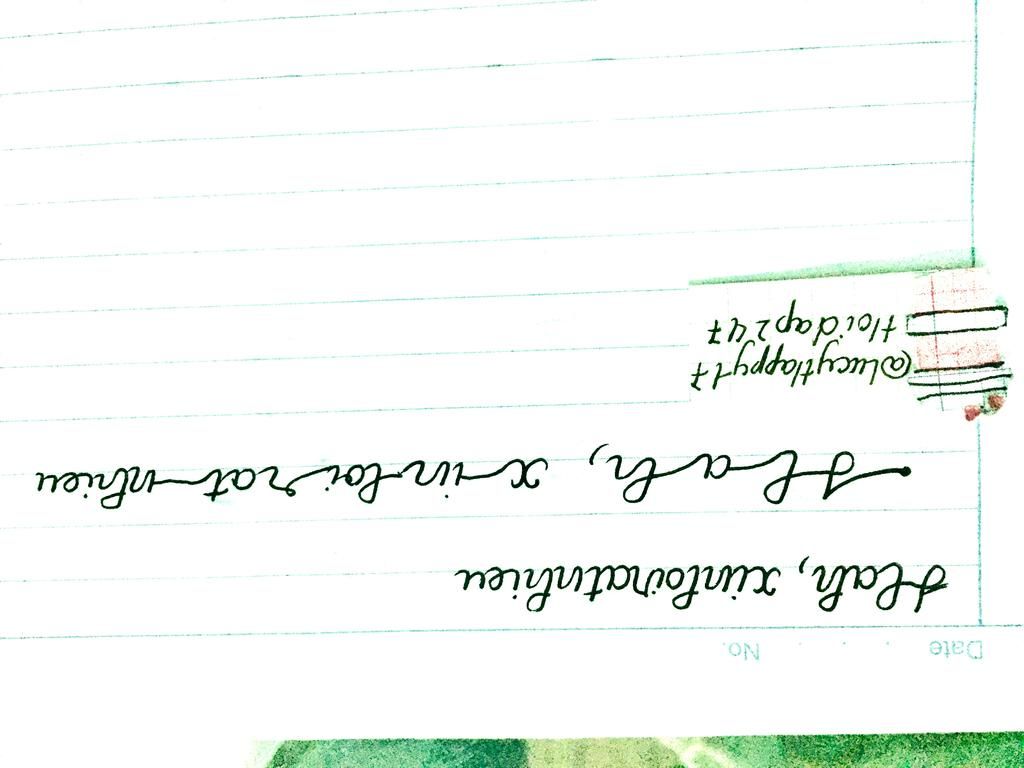 Date . . . No.
Hah, xinloiratnhieu
Hah, xin loi rat nhieu
@lucyHappy17
Hoidap247